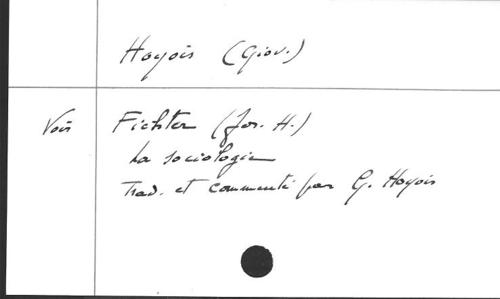 Hoyois (Giov.)
Voir Fichter (Jos. H.)
La sociologie
Trad. et commenté par G. Hoyois